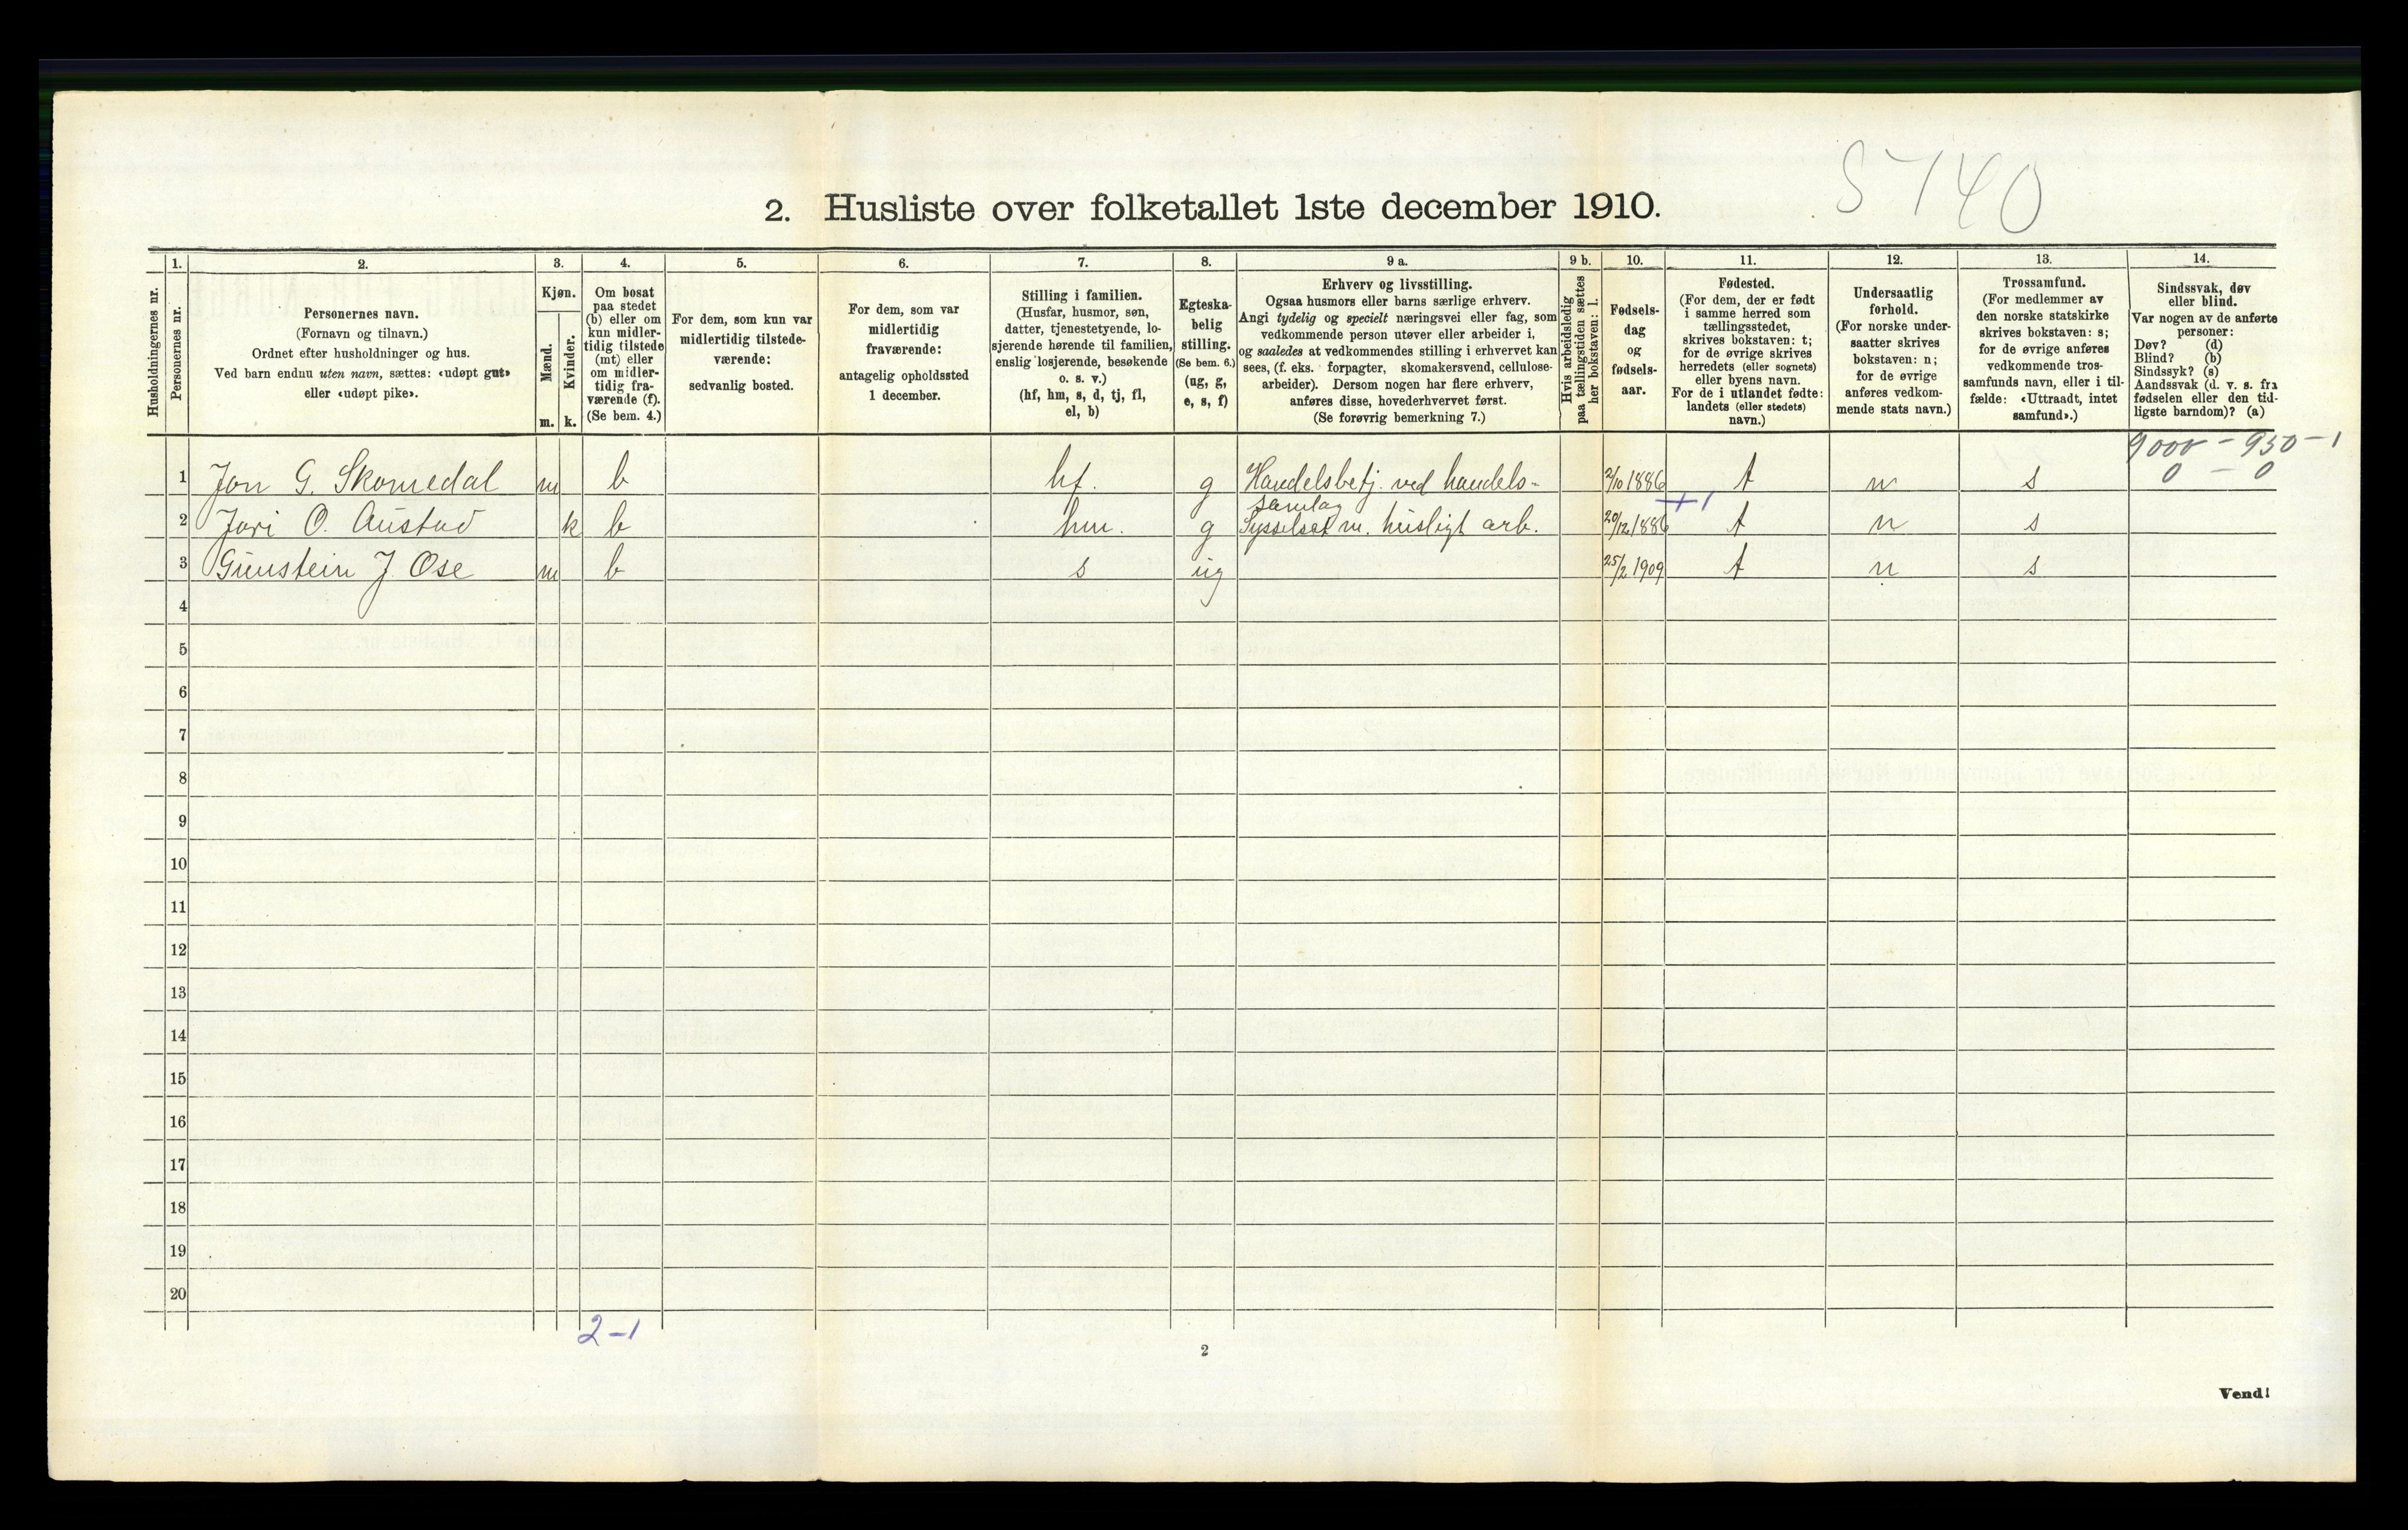 5740
2. Husliste over folketallet 1ste december 1910.
Husholdningernes nr.
1. Personernes nr.
2. Personernes navn.
(Fornavn og tilnavn.)
Ordnet efter husholdninger og hus.
Ved barn endnu uten navn, sættes: «udøpt gut»
eller «udøpt pike».
3. Kjøn.
Mænd. m.
Kvinder. k.
4. Om bosat
paa stedet
(b) eller om
kun midler-
tidig tilstede
(mt) eller
om midler-
tidig fra-
værende (f).
(Se bem. 4.)
5. For dem, som kun var
midlertidig tilstede-
værende:
sedvanlig bosted.
6. For dem, som var
midlertidig
fraværende:
antagelig opholdssted
1 december.
7. Stilling i familien.
(Husfar, husmor, søn,
datter, tjenestetyende, lo-
sjerende hørende til familien,
enslig losjerende, besøkende
o. s. v.)
(hf, hm, s, d, tj, fl,
el, b)
8. Egteska-
belig
stilling.
(Se bem. 6.)
(ug, g,
e, s, f)
9 a. Erhverv og livsstilling.
Ogsaa husmors eller barns særlige erhverv.
Angi tydelig og specielt næringsvei eller fag, som
vedkommende person utøver eller arbeider i,
og saaledes at vedkommendes stilling i erhvervet kan
sees, (f. eks. forpagter, skomakersvend, cellulose-
arbeider). Dersom nogen har flere erhverv,
anføres disse, hovederhvervet først.
(Se forøvrig bemerkning 7.)
9 b. Hvis arbeidsledig
paa tællingstiden sættes
her bokstaven: l.
10. Fødsels-
dag
og
fødsels-
aar.
11. Fødested.
(For dem, der er født
i samme herred som
tællingsstedet,
skrives bokstaven: t;
for de øvrige skrives
herredets (eller sognets)
eller byens navn.
For de i utlandet fødte:
landets (eller stedets)
navn.)
12. Undersaatlig
forhold.
(For norske under-
saatter skrives
bokstaven: n;
for de øvrige
anføres vedkom-
mende stats navn.)
13. Trossamfund.
(For medlemmer av
den norske statskirke
skrives bokstaven: s;
for de øvrige anføres
vedkommende tros-
samfunds navn, eller i til-
fælde: «Uttraadt, intet
samfund».)
14. Sindssvak, døv
eller blind.
Var nogen av de anførte
personer:
Døv? (d)
Blind? (b)
Sindssyk? (s)
Aandssvak (d. v. s. fra
fødselen eller den tid-
ligste barndom)? (a)
9000 - 950 - 1
0 - 0
1 Jon G. Skomedal m b hf. g Handelsbetj. ved handels-
samlag 2/10 1886 t n s
+1
2 Jori O. Austad k b hm. g Sysselsat m. husligt arb. 20/12 1886 t n s
3 Gunstein J. Ose m b s ug 25/2 1909 t n s
4
5
6
7
8
9
10
11
12
13
14
15
16
17
18
19
20
2-1
2
Vend!